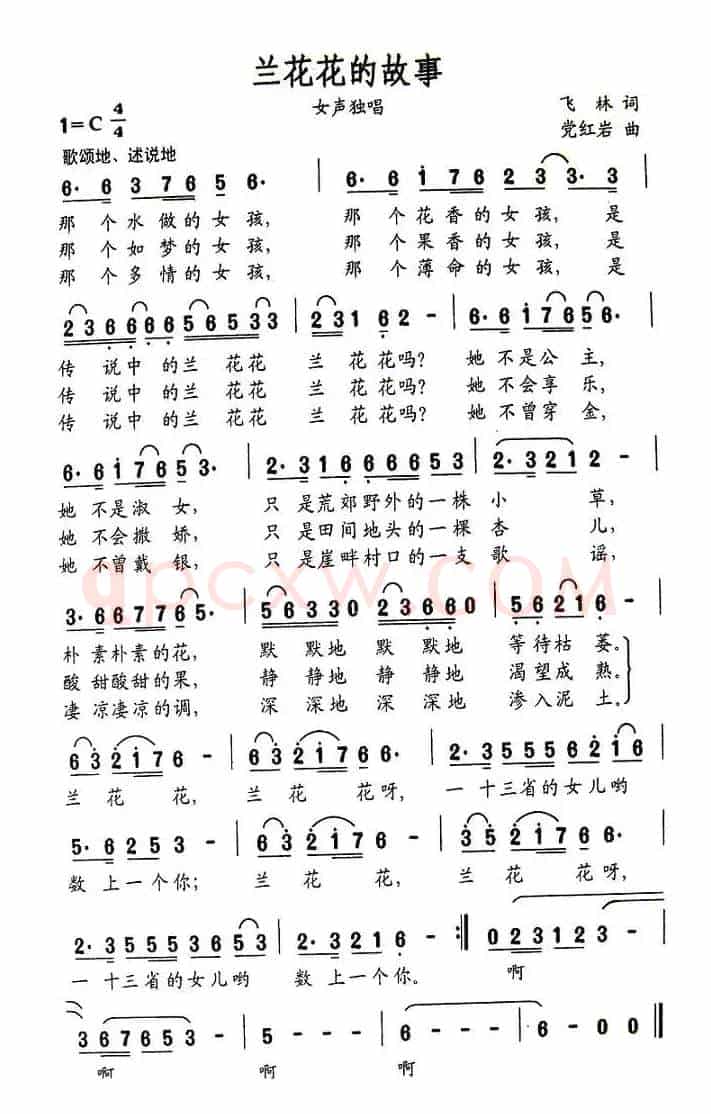 兰花花的故事
女声独唱
1=C 4/4
飞 林 词
党红岩 曲
歌颂地、述说地
6· 6 3 7 6 5 6· | 6· 6 1 7 6 2 3 3· 3 |
那 个 水 做 的 女 孩, 那 个 花 香 的 女 孩, 是
那 个 如 梦 的 女 孩, 那 个 果 香 的 女 孩, 是
那 个 多 情 的 女 孩, 那 个 薄 命 的 女 孩, 是
2 3 6 6 6 6 5 6 5 3 3 | 2 3 1 6 2 - | 6· 6 1 7 6 5 6· |
传 说 中 的 兰 花 花 兰 花 花 吗? 她 不 是 公 主,
传 说 中 的 兰 花 花 兰 花 花 吗? 她 不 会 享 乐,
传 说 中 的 兰 花 花 兰 花 花 吗? 她 不 曾 穿 金,
6· 6 1 7 6 5 3· | 2· 3 1 6 6 6 6 5 3 | 2· 3 2 1 2 - |
她 不 是 淑 女, 只 是 荒 郊 野 外 的 一 株 小 草,
她 不 会 撒 娇, 只 是 田 间 地 头 的 一 棵 杏 儿,
她 不 曾 戴 银, 只 是 崖 畔 村 口 的 一 支 歌 谣,
3· 6 6 7 7 6 5· | 5 6 3 3 0 2 3 6 6 0 | 5 6 2 1 6 - |
朴 素 朴 素 的 花, 默 默 地 默 默 地 等 待 枯 萎。
酸 甜 酸 甜 的 果, 静 静 地 静 静 地 渴 望 成 熟。
凄 凉 凄 凉 的 调, 深 深 地 深 深 地 渗 入 泥 土。
6 3 2 1 7 6 - | 6 3 2 1 7 6 6· | 2· 3 5 5 5 6 2 1 6 |
兰 花 花, 兰 花 花 呀, 一 十 三 省 的 女 儿 哟
5· 6 2 5 3 - | 6 3 2 1 7 6 - | 3 5 2 1 7 6 6 6· |
数 上 一 个 你; 兰 花 花, 兰 花 花 呀,
2· 3 5 5 5 3 6 5 3 | 2· 3 2 1 6 - :‖ 0 2 3 1 2 3 - |
一 十 三 省 的 女 儿 哟 数 上 一 个 你。 啊
3 6 7 6 5 3 | 5 - - - | 6 - - - | 6 - 0 0 ‖
啊 啊 啊
qpcxw.COM